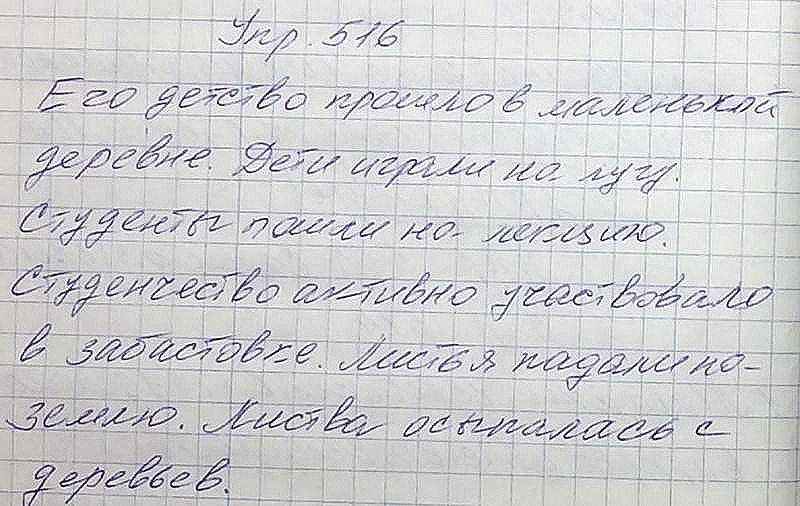 Упр. 516
Его детство прошло в маленькой
деревне. Дети играли на лугу.
Студенты пошли на лекцию.
Студенчество активно участвовало
в забастовке. Листья падали на
землю. Листва осыпалась с
деревьев.